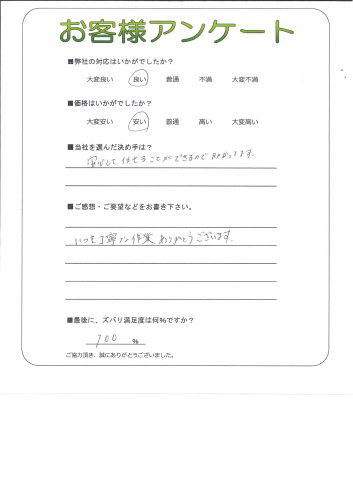 お客様アンケート
■弊社の対応はいかがでしたか？
大変良い 良い 普通 不満 大変不満
■価格はいかがでしたか？
大変安い 安い 普通 高い 大変高い
■当社を選んだ決め手は？
安心して任せることができるので助かってます。
■ご感想・ご要望などをお書き下さい。
いつも丁寧な作業ありがとうございます。
■最後に、ズバリ満足度は何%ですか？
100 %
ご協力頂き、誠にありがとうございました。